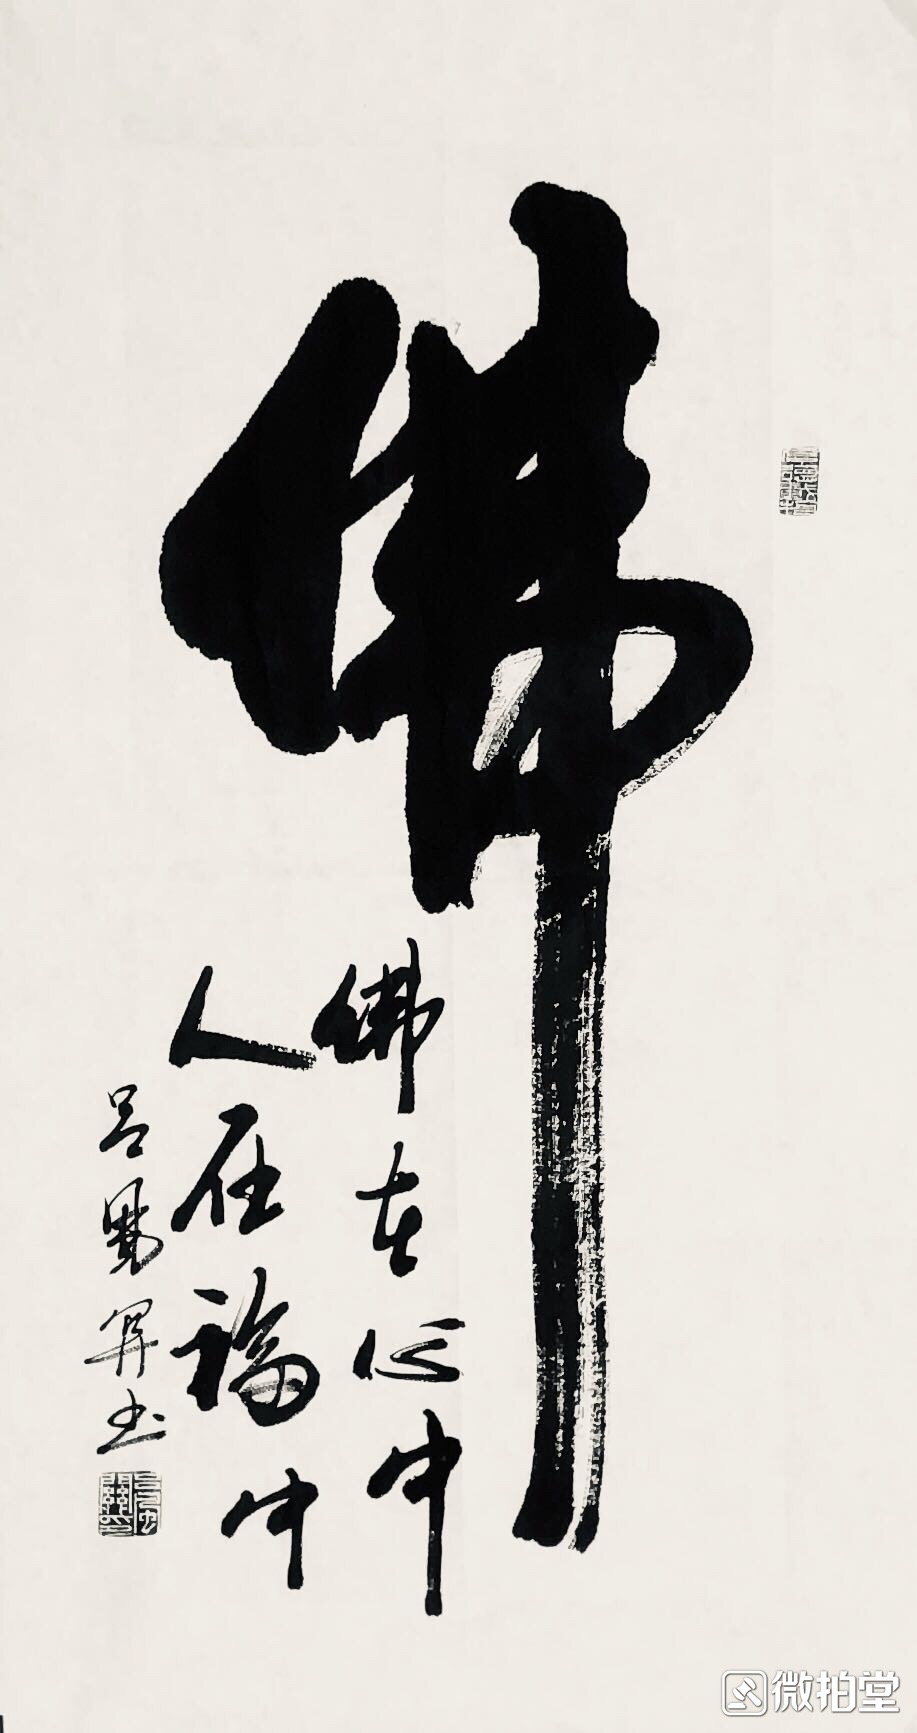 佛
佛在心中
人在福中
吕
书
微拍堂